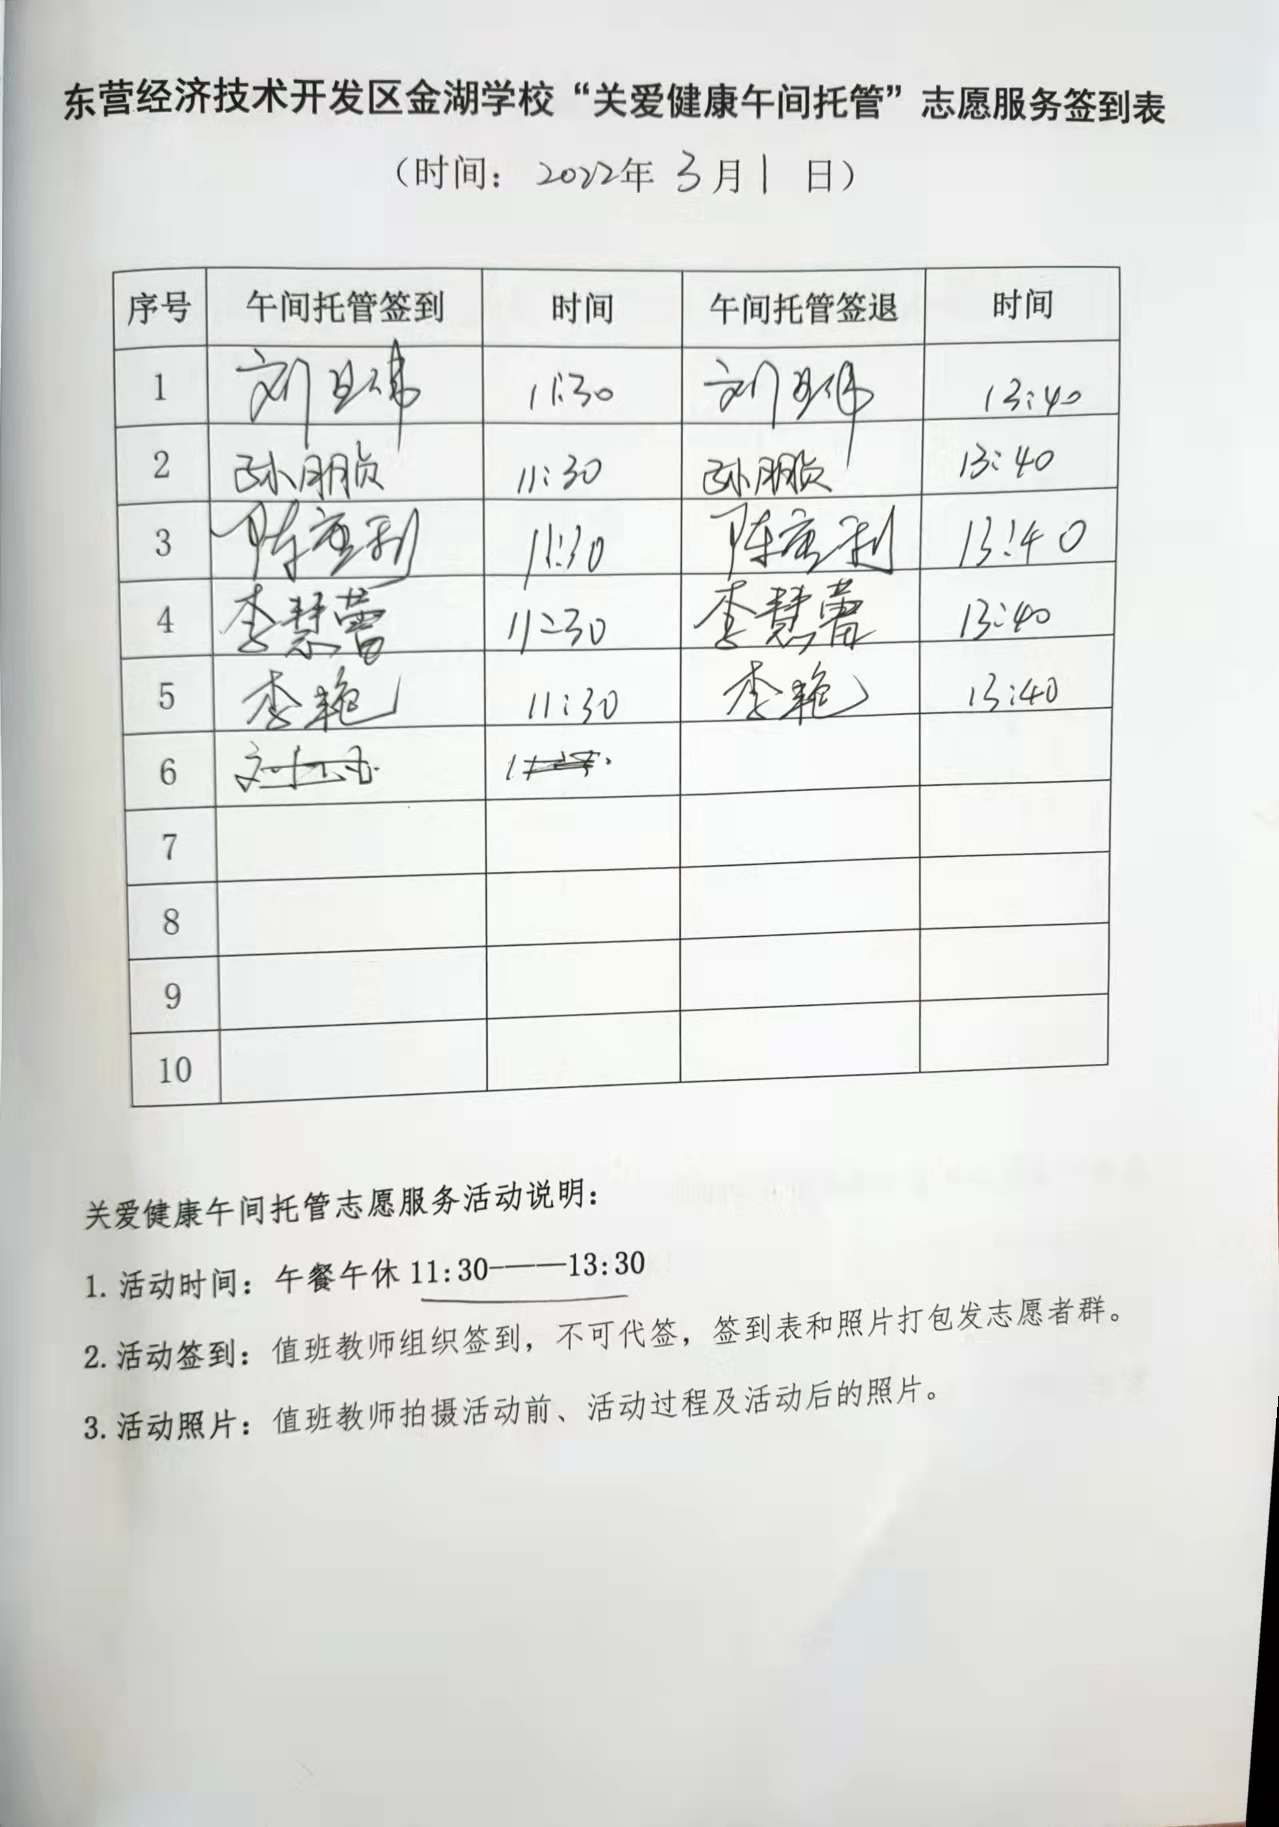 东营经济技术开发区金湖学校“关爱健康午间托管”志愿服务签到表
（时间：2022年3月1日）
序号 午间托管签到 时间 午间托管签退 时间
1 刘 11:30 刘 13:40
2 孙朋贞 11:30 孙朋贞 13:40
3 陈 利 11:30 陈 利 13:40
4 李慧蕾 11:30 李慧蕾 13:40
5 李艳 11:30 李艳 13:40
6
7
8
9
10
关爱健康午间托管志愿服务活动说明：
1. 活动时间：午餐午休 11:30——13:30
2. 活动签到：值班教师组织签到，不可代签，签到表和照片打包发志愿者群。
3. 活动照片：值班教师拍摄活动前、活动过程及活动后的照片。